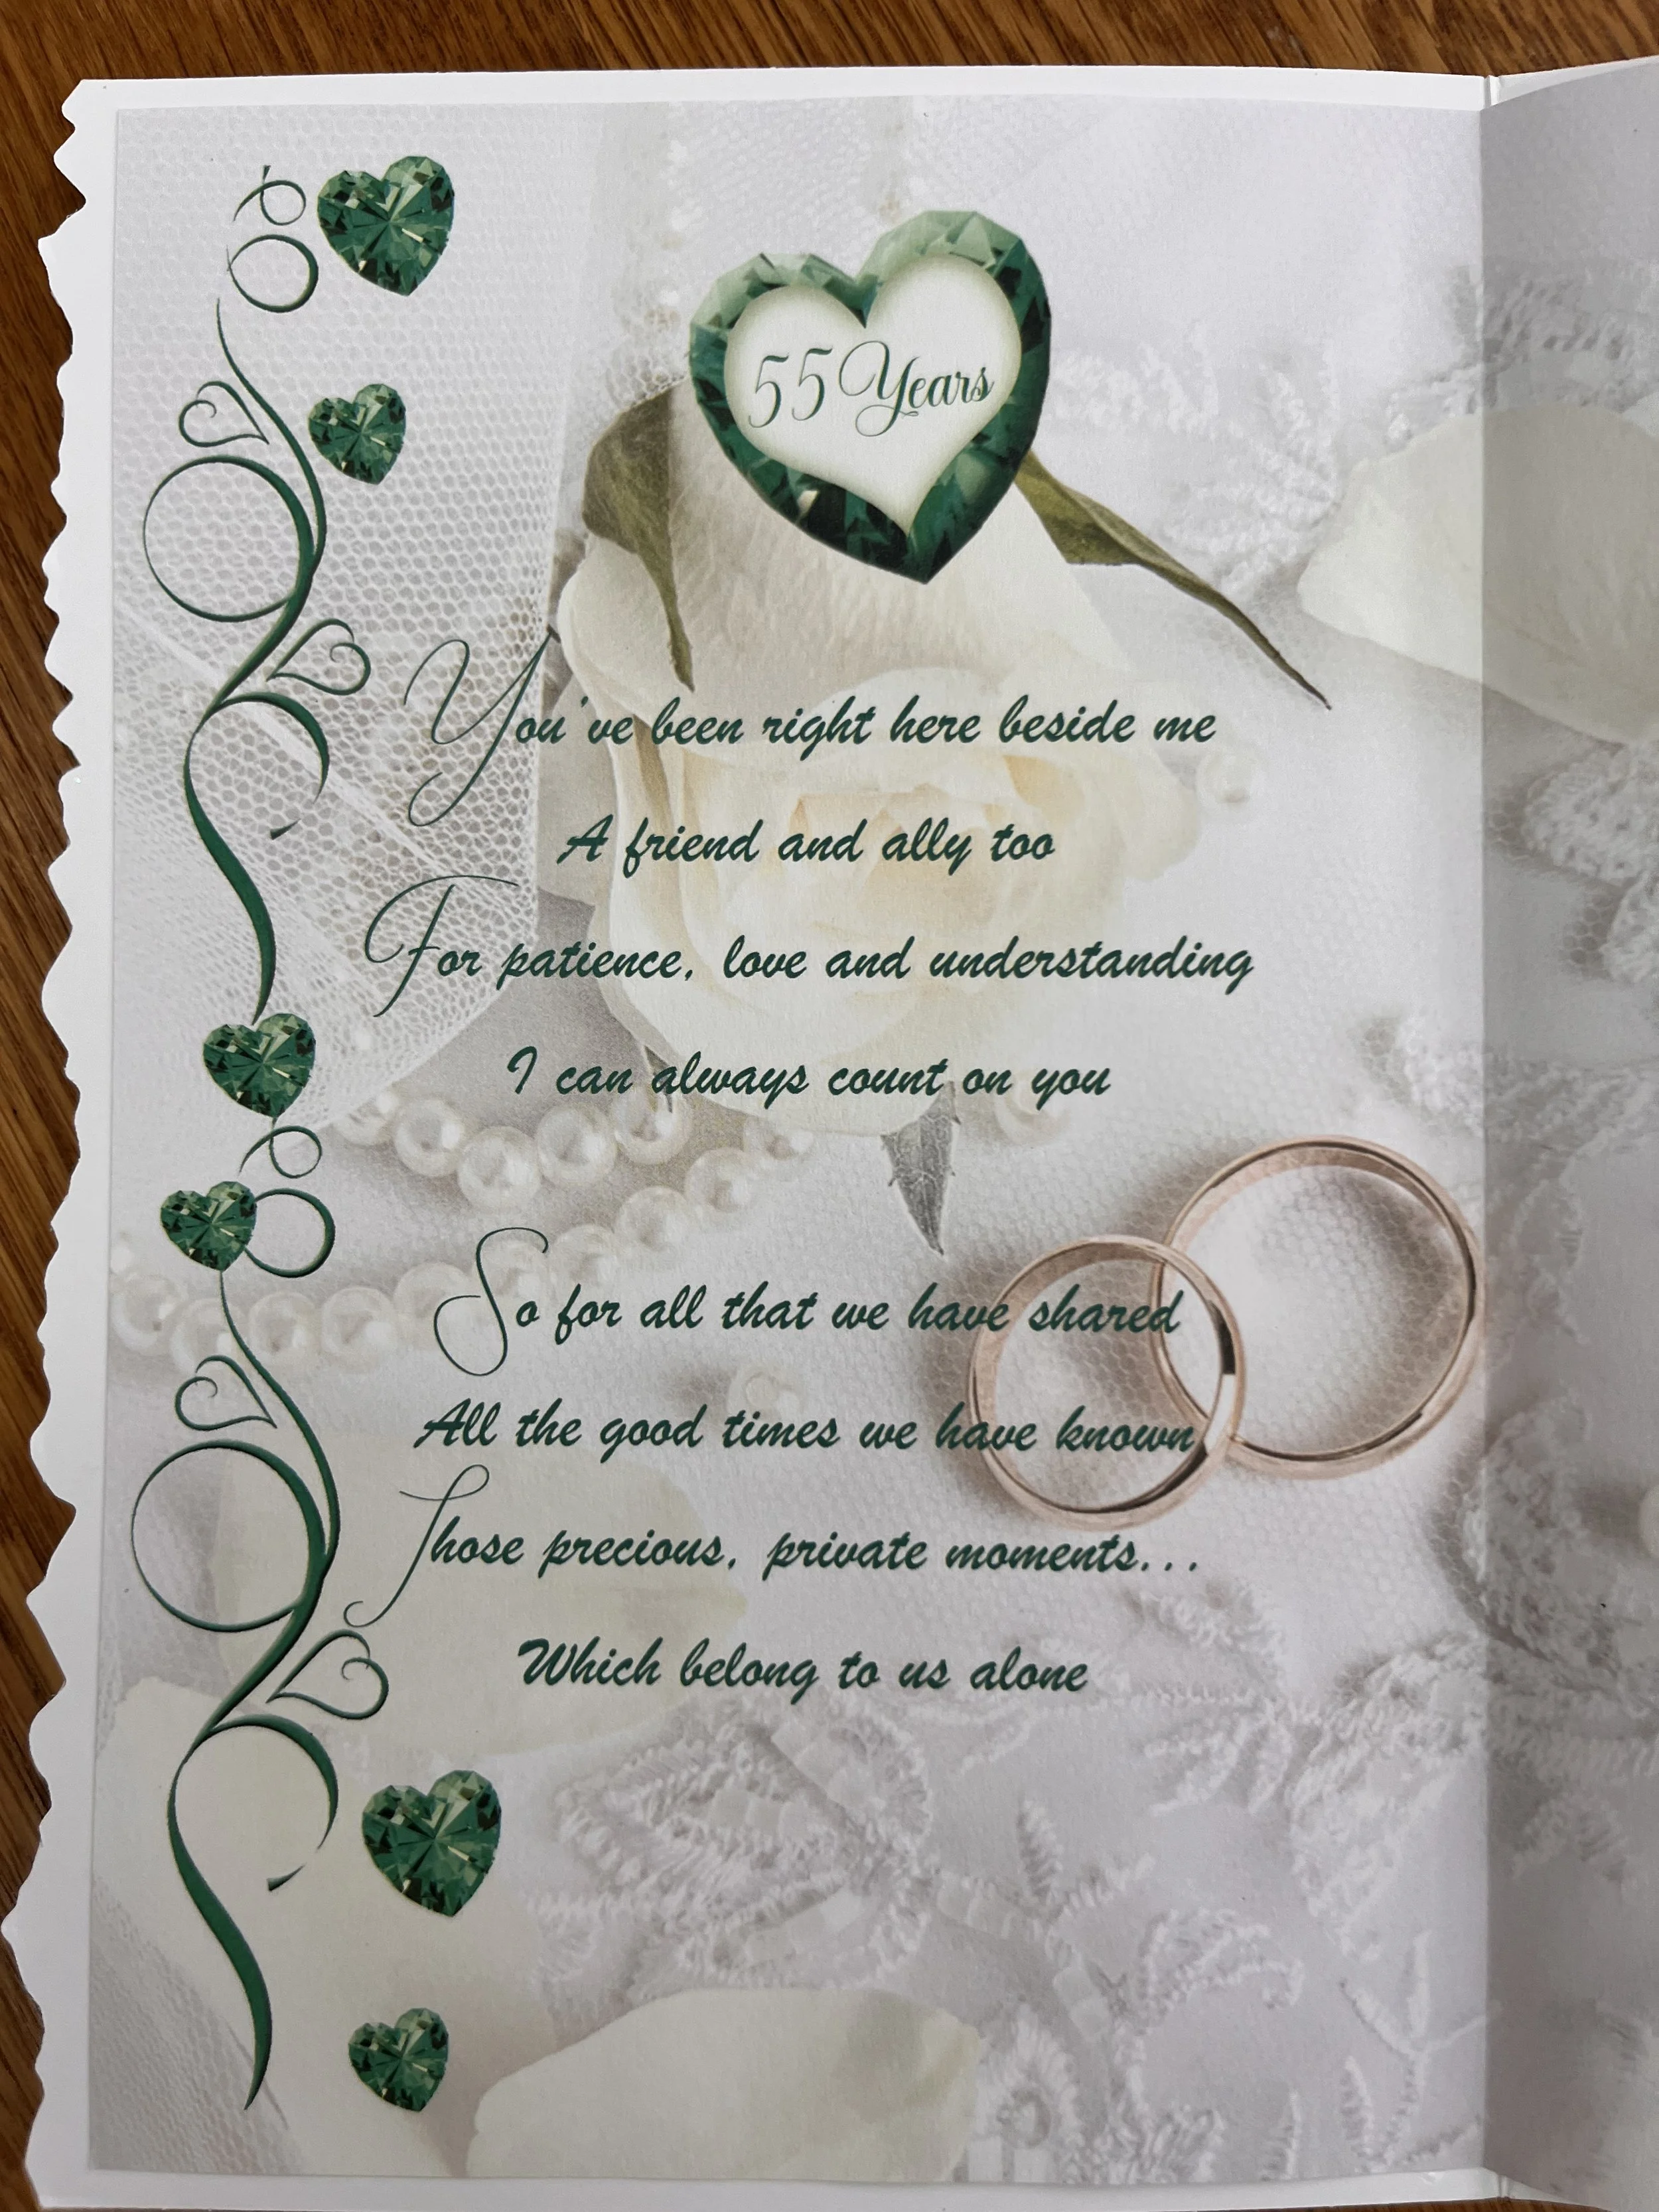 55 Years
You've been right here beside me
A friend and ally too
For patience, love and understanding
I can always count on you
So for all that we have shared
All the good times we have known
Those precious, private moments...
Which belong to us alone